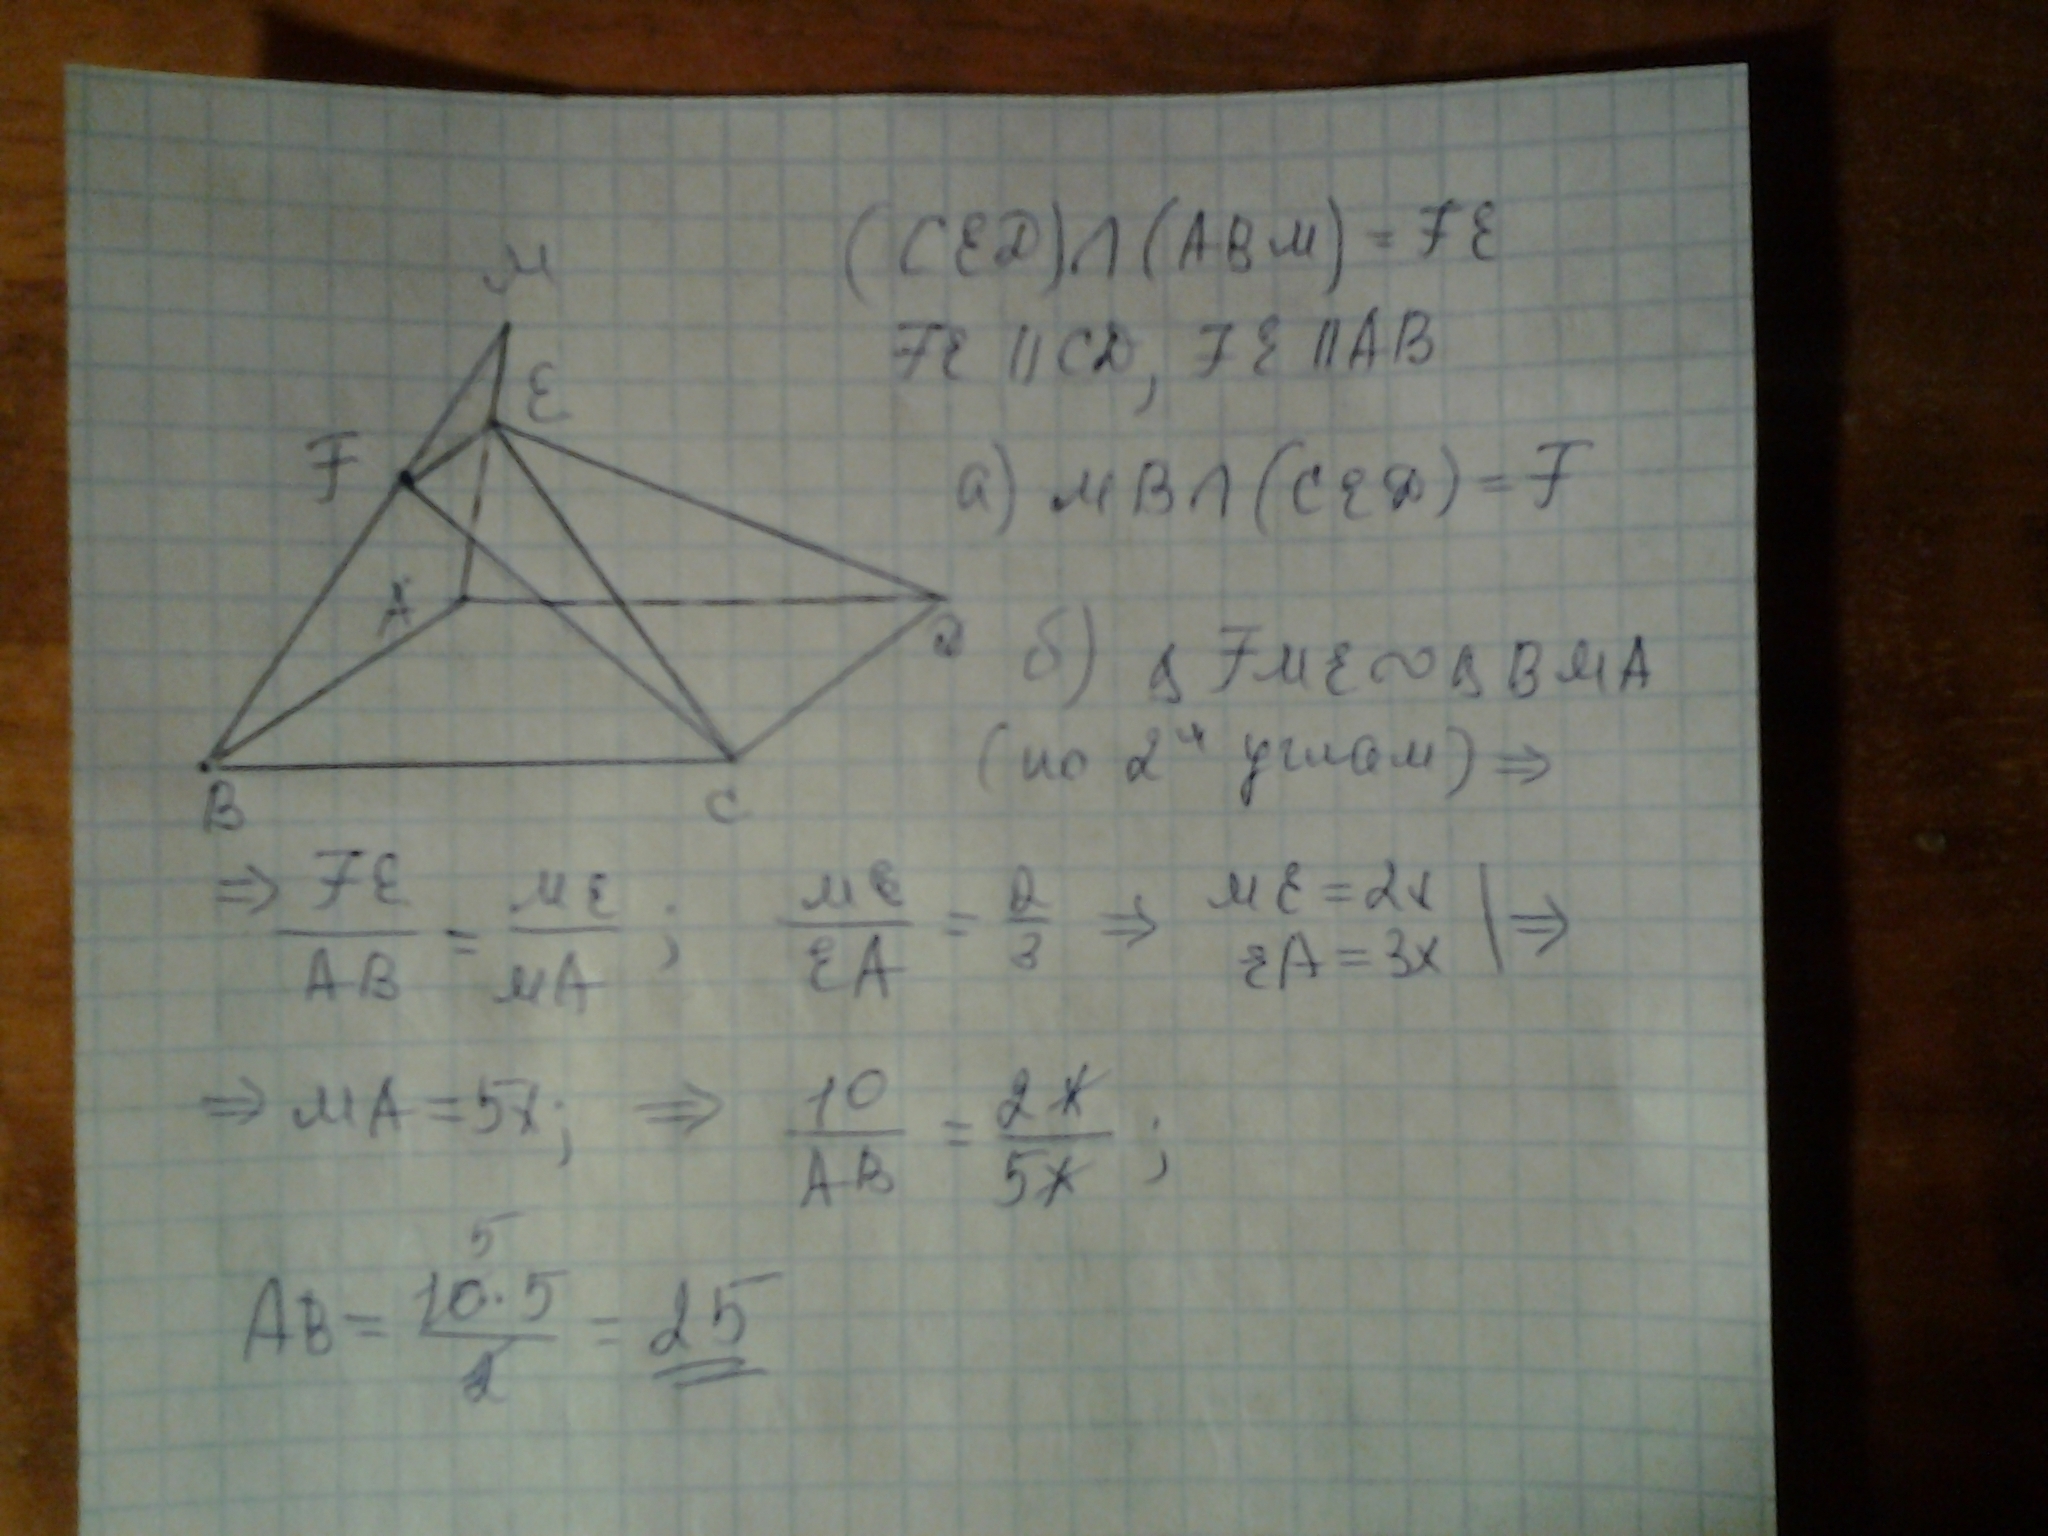 M
E
F
A
D
B
C
(CED)∩(ABM) = FE
FE || CD, FE || AB
a) MB∩(CED) = F
б) Δ FME ~ Δ BMA
(по 2м углам) ⇒
⇒ FE/AB = ME/MA ; ME/EA = 2/3 ⇒ ME = 2x EA = 3x | ⇒
⇒ MA = 5x; ⇒ 10/AB = 2x/5x ;
5
AB = 10·5/2 = 25